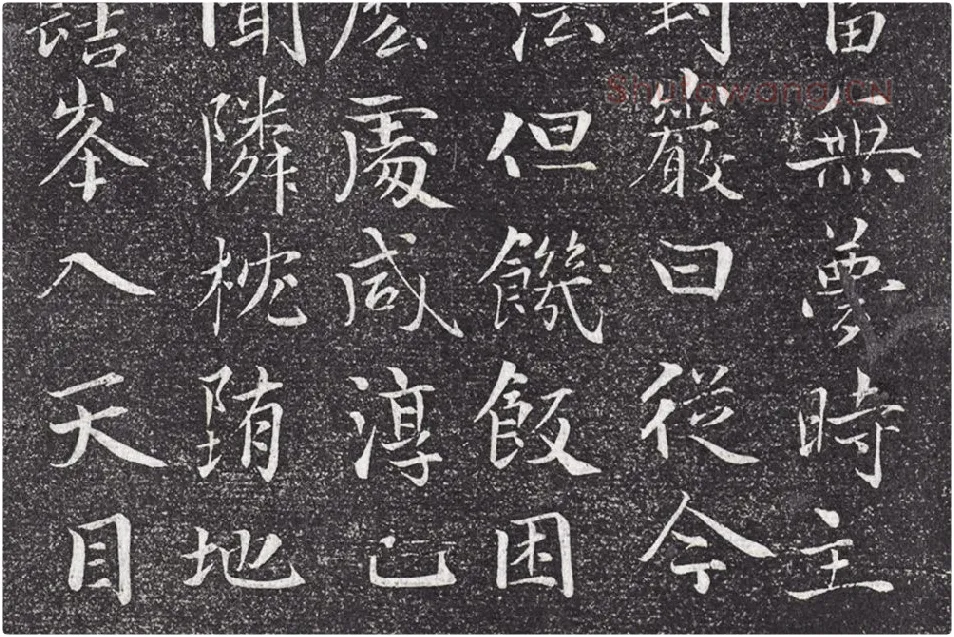 當無夢時主
對巖曰從今
法但饑飯困
麼處咸淳己
聞隣枕堕地
詰峯入天目
Shufawang.CN